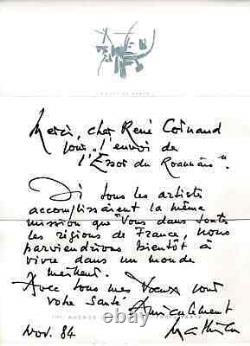 Merci, cher René Coinaud
pour "l'envoi de
l'Essor du Roannais".
Si tous les artistes
accomplissaient la même
mission que Vous dans toutes
les régions de France, nous
parviendrions bientôt à
vivre dans un monde
meilleur.
Avec tous mes Vœux pour
votre Santé
Amicalement
Mathieu
Nov. 84